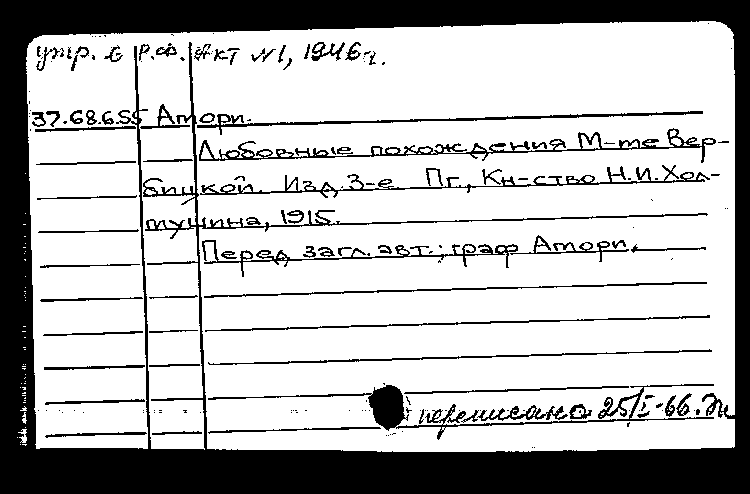 утр. в Р.Ф. Акт №1, 1946 г.
37.68.655 Амори.
Любовные похождения М-me Вер-
бицкой. Изд. 3-е. Пг., Кн-ство Н.И. Хол-
мушина, 1915.
Перед загл. авт.: граф Амори.
переписано 25/I-66.